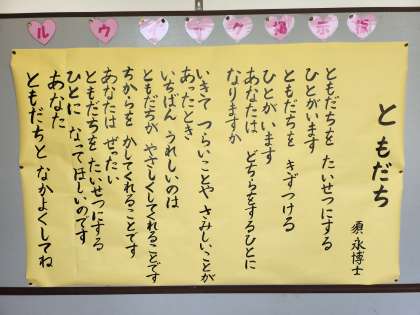 ル
ウ
ワ
ク
ともだち
須永博士
ともだちを たいせつにする
ひとがいます
ともだちを きずつける
ひとが います
あなたは どちらをするひとに
なりますか
いきて つらいことや さみしいことが
あったとき
いちばん うれしいのは
ともだちが やさしくしてくれることです
ちからを かしてくれることです
あなたは ぜったい
ともだちを たいせつにする
ひとに なってほしいのです
あなた
ともだちと なかよくしてね